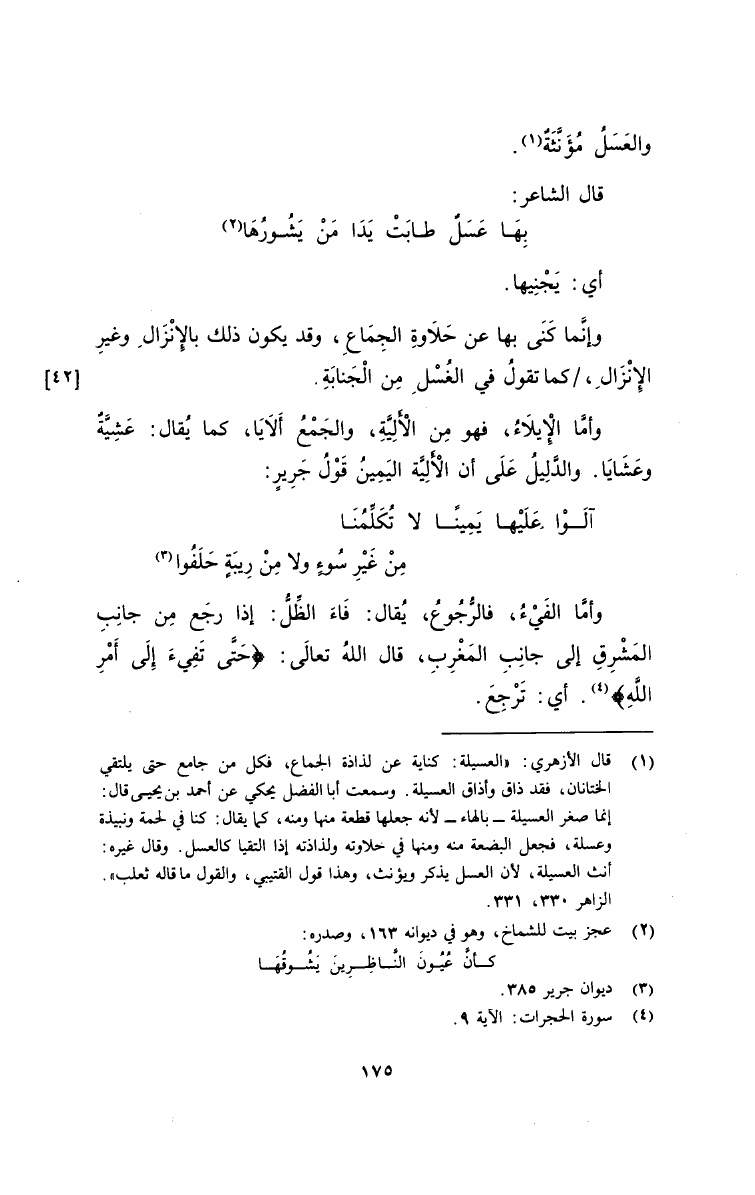 والعَسَلُ مُؤَنَّثَةٌ(١).
قال الشاعر:
بِهَـا عَسَلٌ طـابَتْ يَدَا مَنْ يَشُـورُهَا(٢)
أي: يَجْنِيها.
وإنَّما كَنَى بها عن حَلَاوةِ الجِمَاعِ، وقد يكون ذلك بالإنْزَالِ وغيرِ
الإنْزَالِ، /كما تقولُ في الغُسْلِ مِن الْجَنابَةِ. [٤٢]
وأمَّا الْإِيلَاءُ، فهو مِن الْأَلِيَّةِ، والجَمْعُ أَلَايَا، كما يُقال: عَشِيَّةٌ
وعَشَايَا. والدَّلِيلُ عَلَى أن الْأَلِيَّة اليَمِينُ قَوْلُ جَرِيرٍ:
آلَــوْا عَلَيْهـا يَمِينًــا لا تُكَلِّمُنَـا
مِنْ غَيْرِ سُوءٍ ولا مِنْ رِيبَةٍ حَلَفُوا(٣)
وأمَّا الفَيْءُ، فالرُّجُوعُ، يُقال: فَاءَ الظِّلُّ: إذا رجَع مِن جانِبِ
المَشْرِقِ إلى جانِبِ المَغْرِبِ، قال اللهُ تعالَى: ﴿حَتَّى تَفِيءَ إِلَى أَمْرِ
اللَّهِ﴾(٤). أي: تَرْجِعَ.
(١) قال الأزهري: «العسيلة: كناية عن لذاذة الجماع، فكل من جامع حتى يلتقي
الختانان، فقد ذاق وأذاق العسيلة. وسمعت أبا الفضل يحكي عن أحمد بن يحيـى قال:
إنما صغر العسيلة ـ بالهاء ـ لأنه جعلها قطعة منها ومنه، كما يقال: كنا في لحمة ونبيذة
وعسلة، فجعل البضعة منه ومنها في حلاوته ولذاذته إذا التقيا كالعسل. وقال غيره:
أنث العسيلة، لأن العسل يذكر ويؤنث، وهذا قول القتيبي، والقول ما قاله ثعلب».
الزاهر ٣٣٠، ٣٣١.
(٢) عجز بيت للشماخ، وهو في ديوانه ١٦٣، وصدره:
كــأنَّ عُيُـونَ النَّـاظِـرِينَ يَشُـوقُهَـا
(٣) ديوان جرير ٣٨٥.
(٤) سورة الحجرات: الآية ٩.
١٧٥